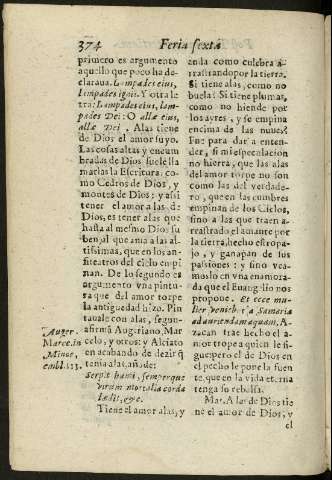 374 Feria sexta
primero es argumento
aquello que poco ha de-
claraua. Lampades eius,
lampades ignis. Y otra le-
tra: Lampades eius, lam-
pades Dei: O allæ eius,
allæ Dei. Alas tiene
de Dios; el amor suyo.
Las cosas altas y encum
bradas de Dios suele lla
marlas la Escritura: co-
mo Cedros de Dios, y
montes de Dios: y assi
tener el amor alas: d:
Dios, es tener alas que
hasta al mesmo Dios su
ben, al que ania a las al-
tissimas, que en los an-
fiteatros del cielo empi-
nan. De lo segundo es
argumento vna pintu-
ra que del amor torpe
la antiguedad hizo. Pin
tauale con alas, segun
afirmã Augeriano, Mar
celo, y otros: y Alciato
en acabando de dezir q̃
tenia alas, añade:
Serpit humi, semperque
virum mortalia corda
lædit, &c.
Tiene el amor alas, y
Auger.
Marce. in
Minoe,
embl. 113.
anda como culebra a-
rrastrando por la tierra.
Si tiene alas, como no
buela? Si tiene plumas,
como no hiende por
los ayres, y se empina
encima de las nuues?
Fue para dar a enten-
der, si mi especulacion
no hierra, que las alas
del amor torpe no son
como las del verdade-
ro, que en las cumbres
empinan de los Cielos,
sino a las que traen a-
rrastrado el amante por
la tierra, hecho estropa-
jo, y ganapan de sus
passiones: y sino vea-
moslo en vna enamora-
da que el Euangelio nos
propone. Et ecce mu-
lier venieb t'a Samaria
ad auriendam aquam. A
sacan trae hecho el a-
mor trope a quien le si-
gue: pero el de Dios en
el pecho le pone la fuen
te, que en la vida eterna
tenga su rebalsa.
Mas, Alas de Dios tie
ne el amor de Dios, y
el